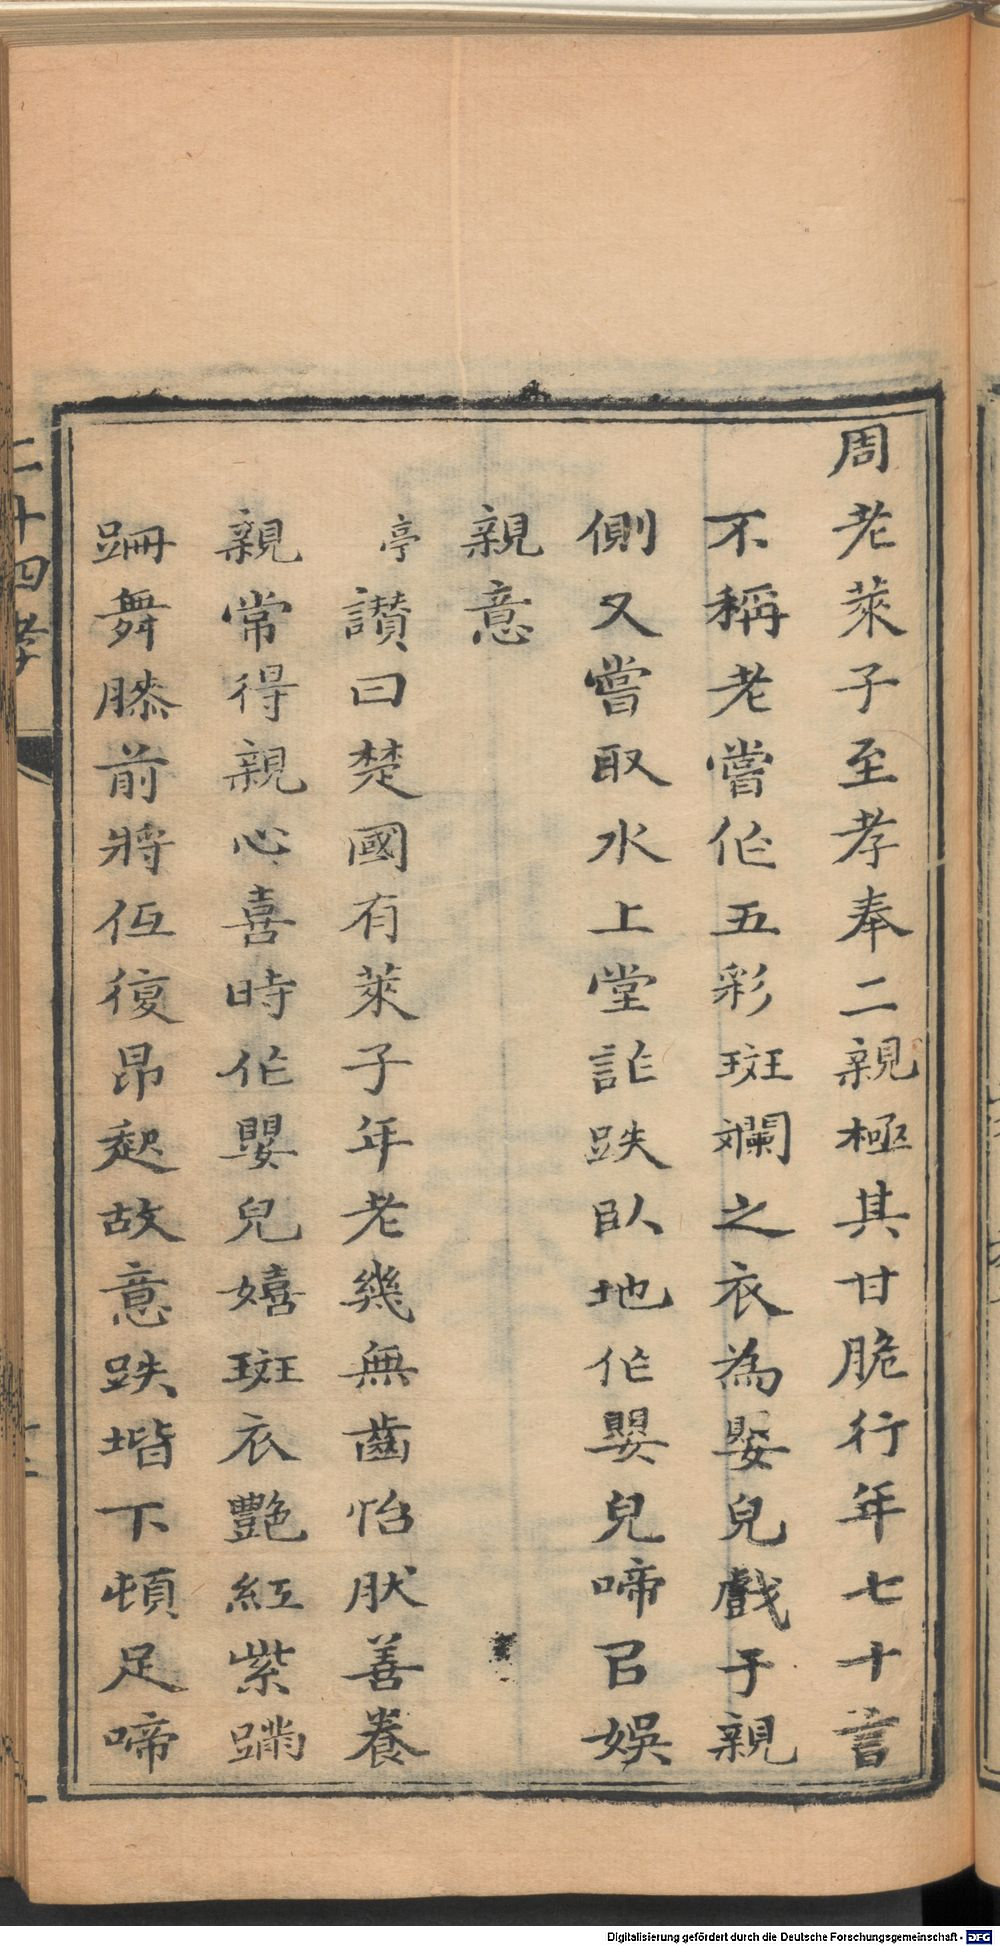 周老萊子至孝奉二親極其甘脆行年七十言
不稱老嘗作五彩斑斕之衣為嬰兒戲于親
側又嘗取水上堂詐跌臥地作嬰兒啼㠯娛
親意
亭讃曰楚國有萊子年老幾無齒怡肰善養
親常得親心喜時作嬰兒嬉斑衣艷紅紫蹣
跚舞膝前將伍復昂起故意跌堦下頓足啼
二十四孝
Digitalisierung gefördert durch die Deutsche Forschungsgemeinschaft - DFG